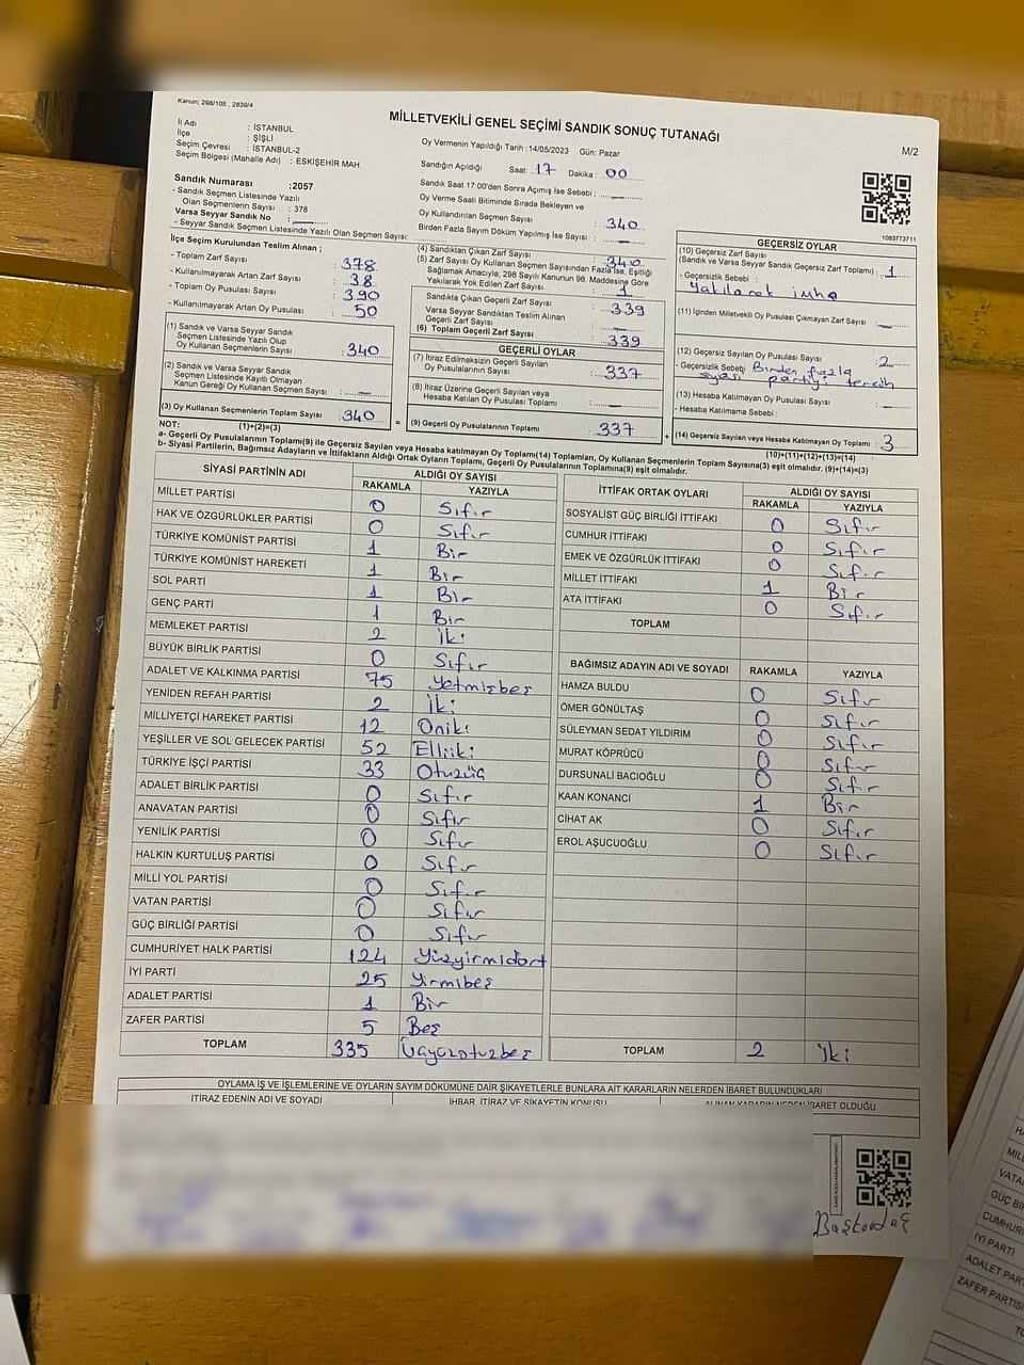 Kanun: 298/105 , 2839/4
MİLLETVEKİLİ GENEL SEÇİMİ SANDIK SONUÇ TUTANAĞI
M/2
İl Adı : İSTANBUL
İlçe : ŞİŞLİ
Seçim Çevresi : İSTANBUL-2
Seçim Bölgesi (Mahalle Adı) : ESKİŞEHİR MAH
Sandık Numarası :2057
- Sandık Seçmen Listesinde Yazılı
Olan Seçmenlerin Sayısı : 378
Varsa Seyyar Sandık No :
- Seyyar Sandık Seçmen Listesinde Yazılı Olan Seçmen Sayısı:
İlçe Seçim Kurulundan Teslim Alınan ;
- Toplam Zarf Sayısı : 378
- Kullanılmayarak Artan Zarf Sayısı : 38
- Toplam Oy Pusulası Sayısı : 390
- Kullanılmayarak Artan Oy Pusulası : 50
(1) Sandık ve Varsa Seyyar Sandık
Seçmen Listesinde Yazılı Olup
Oy Kullanan Seçmenlerin Sayısı : 340
(2) Sandık ve Varsa Seyyar Sandık
Seçmen Listesinde Kayıtlı Olmayan
Kanun Gereği Oy Kullanan Seçmen Sayısı :
(3) Oy Kullanan Seçmenlerin Toplam Sayısı : 340
(1)+(2)=(3)
Oy Vermenin Yapıldığı Tarih :14/05/2023 Gün: Pazar
Sandığın Açıldığı Saat: 17 Dakika : 00
Sandık Saat 17:00'den Sonra Açılmış İse Sebebi :
Oy Verme Saati Bitiminde Sırada Bekleyen ve
Oy Kullandırılan Seçmen Sayısı : 340
Birden Fazla Sayım Döküm Yapılmış İse Sayısı :
(4) Sandıktan Çıkan Zarf Sayısı : 340
(5) Zarf Sayısı Oy Kullanan Seçmen Sayısından Fazla İse, Eşitliği
Sağlamak Amacıyla, 298 Sayılı Kanunun 98. Maddesine Göre
Yakılarak Yok Edilen Zarf Sayısı : 1
Sandıkta Çıkan Geçerli Zarf Sayısı : 339
Varsa Seyyar Sandıktan Teslim Alınan
Geçerli Zarf Sayısı :
(6) Toplam Geçerli Zarf Sayısı : 339
GEÇERLİ OYLAR
(7) İtiraz Edilmeksizin Geçerli Sayılan
Oy Pusulalarının Sayısı : 337
(8) İtiraz Üzerine Geçerli Sayılan veya
Hesaba Katılan Oy Pusulası Toplamı :
= (9) Geçerli Oy Pusulalarının Toplamı : 337 +
1083773711
GEÇERSİZ OYLAR
(10) Geçersiz Zarf Sayısı
(Sandık ve Varsa Seyyar Sandık Geçersiz Zarf Toplamı) : 1
- Geçersizlik Sebebi :
yakılarak imha
(11) İçinden Milletvekili Oy Pusulası Çıkmayan Zarf Sayısı :
(12) Geçersiz Sayılan Oy Pusulası Sayısı : 2
- Geçersizlik Sebebi : Birden fazla
siyasi partiyi tercih
(13) Hesaba Katılmayan Oy Pusulası Sayısı :
- Hesaba Katılmama Sebebi :
(14) Geçersiz Sayılan veya Hesaba Katılmayan Oy Toplamı : 3
(10)+(11)+(12)+(13)=(14)
NOT:
a- Geçerli Oy Pusulalarının Toplamı(9) ile Geçersiz Sayılan veya Hesaba katılmayan Oy Toplamı(14) Toplamları, Oy Kullanan Seçmenlerin Toplam Sayısına(3) eşit olmalıdır. (9)+(14)=(3)
b- Siyasi Partilerin, Bağımsız Adayların ve İttifakların Aldığı Ortak Oyların Toplamı, Geçerli Oy Pusulalarının Toplamına(9) eşit olmalıdır.
SİYASİ PARTİNİN ADI ALDIĞI OY SAYISI
RAKAMLA YAZIYLA
MİLLET PARTİSİ 0 Sıfır
HAK VE ÖZGÜRLÜKLER PARTİSİ 0 Sıfır
TÜRKİYE KOMÜNİST PARTİSİ 1 Bir
TÜRKİYE KOMÜNİST HAREKETİ 1 Bir
SOL PARTİ 1 Bir
GENÇ PARTİ 1 Bir
MEMLEKET PARTİSİ 2 İki
BÜYÜK BİRLİK PARTİSİ 0 Sıfır
ADALET VE KALKINMA PARTİSİ 75 Yetmişbeş
YENİDEN REFAH PARTİSİ 2 İki
MİLLİYETÇİ HAREKET PARTİSİ 12 Oniki
YEŞİLLER VE SOL GELECEK PARTİSİ 52 Elliiki
TÜRKİYE İŞÇİ PARTİSİ 33 Otuzüç
ADALET BİRLİK PARTİSİ 0 Sıfır
ANAVATAN PARTİSİ 0 Sıfır
YENİLİK PARTİSİ 0 Sıfır
HALKIN KURTULUŞ PARTİSİ 0 Sıfır
MİLLİ YOL PARTİSİ 0 Sıfır
VATAN PARTİSİ 0 Sıfır
GÜÇ BİRLİĞİ PARTİSİ 0 Sıfır
CUMHURİYET HALK PARTİSİ 124 Yüzyirmidört
İYİ PARTİ 25 Yirmibeş
ADALET PARTİSİ 1 Bir
ZAFER PARTİSİ 5 Beş
TOPLAM 335 Üçyüzotuzbeş
İTTİFAK ORTAK OYLARI ALDIĞI OY SAYISI
RAKAMLA YAZIYLA
SOSYALİST GÜÇ BİRLİĞİ İTTİFAKI 0 Sıfır
CUMHUR İTTİFAKI 0 Sıfır
EMEK VE ÖZGÜRLÜK İTTİFAKI 0 Sıfır
MİLLET İTTİFAKI 1 Bir
ATA İTTİFAKI 0 Sıfır
TOPLAM
BAĞIMSIZ ADAYIN ADI VE SOYADI RAKAMLA YAZIYLA
HAMZA BULDU 0 Sıfır
ÖMER GÖNÜLTAŞ 0 Sıfır
SÜLEYMAN SEDAT YILDIRIM 0 Sıfır
MURAT KÖPRÜCÜ 0 Sıfır
DURSUNALİ BACIOĞLU 0 Sıfır
KAAN KONANCI 1 Bir
CİHAT AK 0 Sıfır
EROL AŞUCUOĞLU 0 Sıfır
TOPLAM 2 İki
OYLAMA İŞ VE İŞLEMLERİNE VE OYLARIN SAYIM DÖKÜMÜNE DAİR ŞİKAYETLERLE BUNLARA AİT KARARLARIN NELERDEN İBARET BULUNDUKLARI
İTİRAZ EDENİN ADI VE SOYADI İHBAR, İTİRAZ VE ŞİKAYETİN KONUSU ALINAN KARARIN NEDEN İBARET OLDUĞU
VATA
GÜÇ Bİ
CUMHUR
İYİ PARTİ
ADALET PAR
ZAFER PARTİS